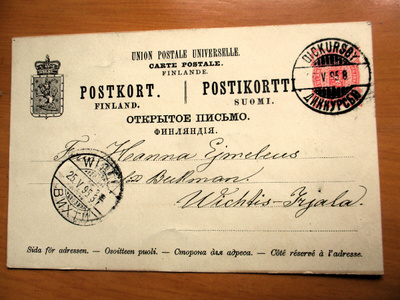 UNION POSTALE UNIVERSELLE.
CARTE POSTALE.
FINLANDE.
POSTKORT. POSTIKORTTI
FINLAND. SUOMI.
ОТКРЫТОЕ ПИСЬМО.
ФИНЛЯНДІЯ.
DICKURSBY
V. 95 8
ДИККУРСБЮ
Fr. Hanna Ejmelæus
Wichtis-Irjala.
WICHTIS
25 V. 95
ВИХТИ
Sida för adressen. - Osoitteen puoli. - Сторона для адреса. - Côté réservé à l'adresse.